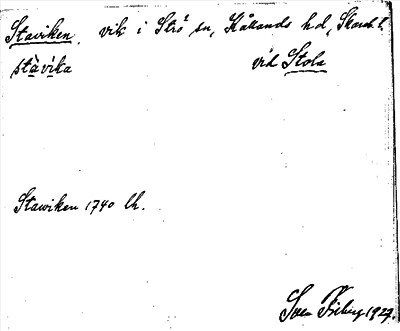 Staviken, vik i Strö sn, Kållands hd, Skarab. l.
stàvíka vid Stola
Stawiken 1740 Lh.
Sven 1927.